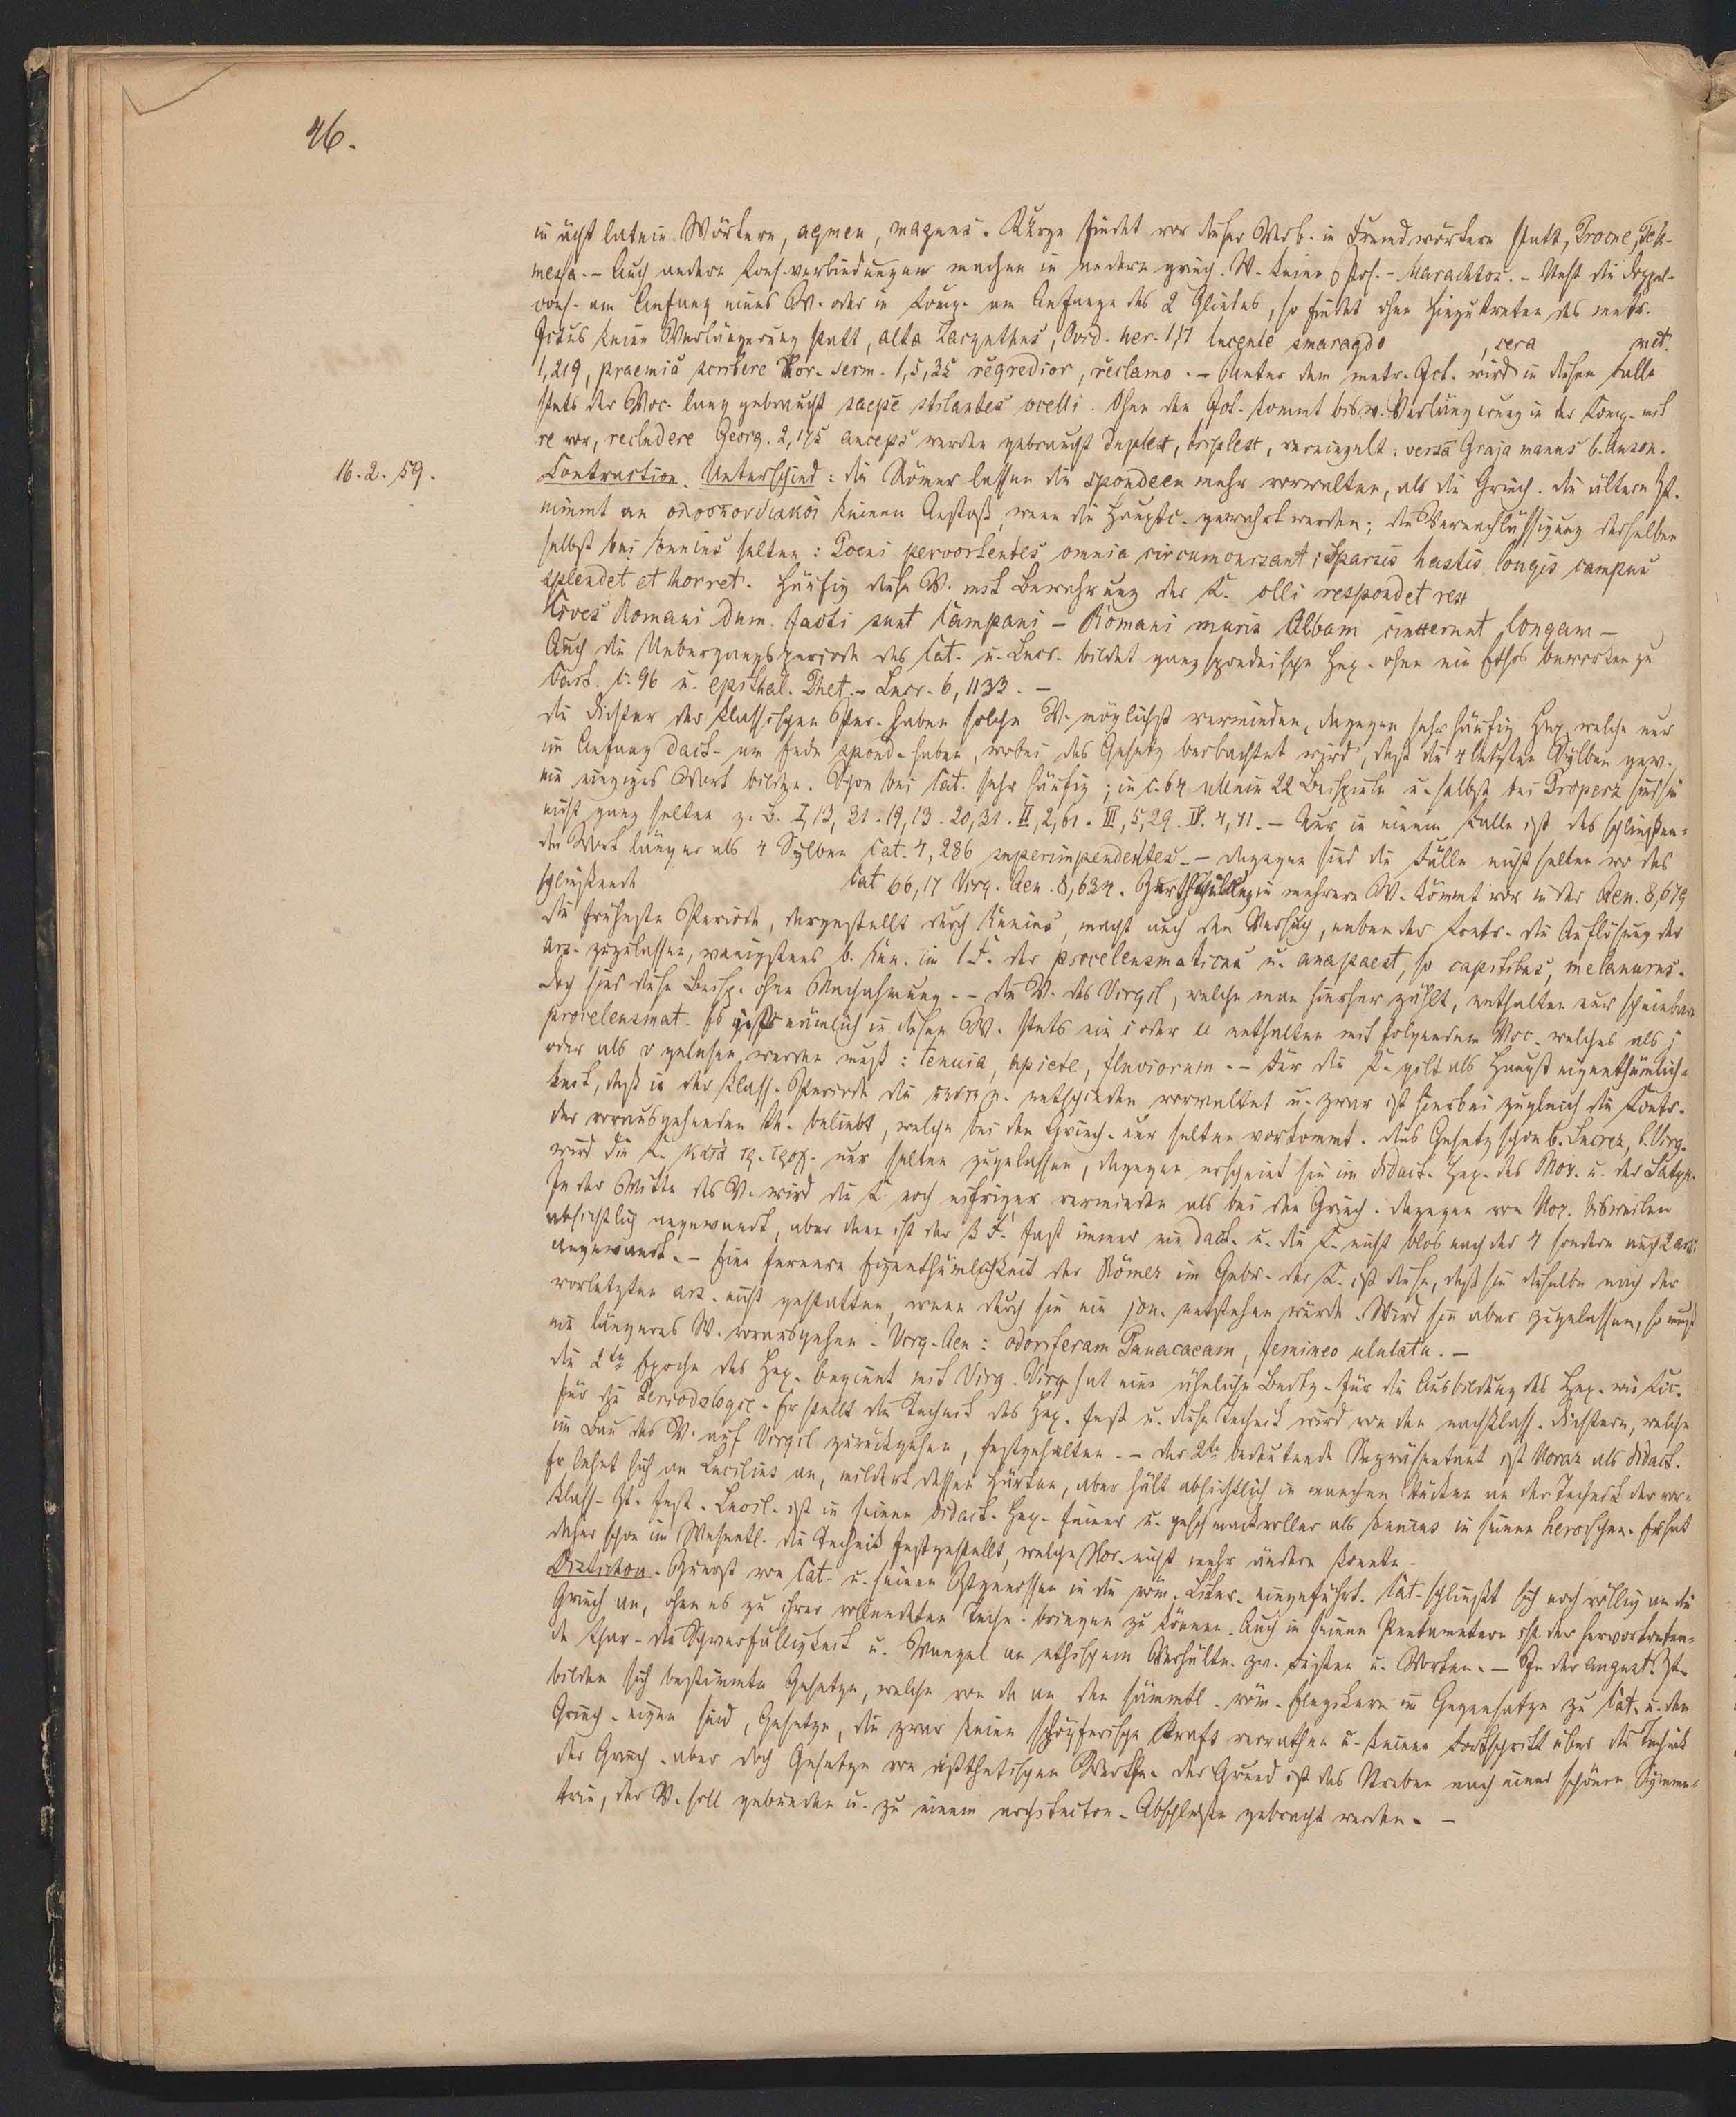 46.
in ächt latein. Wörtern, agmen, magnus. Kürze findet vor dieser Verb. in Fremdwörtern statt, Procne, Tek-
messa. - Auch andere Cons.verbindungen machen in andern griech. W. keine Pos. - - Steht die Doppel-
cons. am Anfang eines W. oder in Comp. am Anfange des 2 Gliedes, so findet ohne Hinzutreten des metr.
Ictus keine Verlängerung statt, alta Zacynthus, Ovid. her. 1, lucente smaragdo , cera met.
1,219, praemia scribere Hor. serm. 1,5,35 regredior, reclamo. - Unter dem metr. Ict. wird in diesem Falle
stets der Voc. lang gebraucht saepe stilantes ocelli. Ohne den Ict. kommt bisw. Verlängerung in der Comp. mit
re vor, recludere Georg. 2,175 anceps werden gebraucht duplex, triplex, vereinzelt: versa Graja manus b. Auson.
16. 2. 59.
Contraction. Unterschied: die Römer lassen die Spondeen mehr vorwalten, als die Griech. die ältere Zt.
nimmt an keinen Anstoß, wenn die Hauptc. gewahrt werden; die Vernachlässigung derselben
selbst bei Ennius selten: Poeni pervortentes omnia circumcursant; Sparsis hastis longis campus
splendet et horret. Häufig diese V. mit Bewahrung der C. olli respondet rex
Cives Romani dum facti sunt Campani - Romani muris Albam cinxerunt longam -
Auch die Uebergangsperiode des Cat. u. Lucr. bildet ganz spondeische Hex. ohne ein Ethos bewirken zu
 c. 96 u. epithal. Thet. - Lucr. 6, 1133. -
Die Dichter der klassischen Per. haben solche V. möglichst vermieden, dagegen sehr häufig Hex. welche nur
im Anfang dact. am Ende spond. haben, wobei das Gesetz beobachtet wird, daß die 4 letzten Sylben gew.
ein einziges Wort bilden. Schon bei Cat. sehr häufig; in c. 64 allein 22 Beispiele u. selbst bei Properz sind sie
nicht ganz selten z. B. I, 13, 31. 19, 13. 20, 31. II, 2, 61. III, 5, 29. IV. 4, 71. - Nur in einem Falle ist das schließen-
de Wort länger als 4 Sylben Cat. 4, 286 superimpendentes. - dagegen sind die Fälle nicht selten wo das
schließende Cat 66,17 Virg. Aen. 8,634. in mehrere W. kommt vor in der Aen. 8,679
Die früheste Periode, dargestellt durch Ennius, macht auch den Versuch, neben der Contr. die Auflösung der
ars. zuzulassen, wenigstens b. Enn. im 1. F. der proceleusmaticus u. anapaest, so capitibus, melanurus.
Doch sind diese Beisp. ohne Nachahmung. - Die V. des Virgil, welche man hierher zählt, enthalten nur scheinbare
proceleusmat. Es ist nämlich in diesen W. stets ein i oder u enthalten mit folgendem Voc. welches als j
oder als v gelesen werden muß: tenuia, apiete, fluviorum. - Für die C. gilt als Haupteigenthümlich-
keit, daß in der klass. Periode die entschieden vorwaltet u. zwar ist hierbei zugleich die Contr.
der vorausgehenden th. beliebt, welche bei den Griech. nur selten vorkommt. Dies Gesetz schon b. Lucrez, b. Virg.
wird die C. κατὰ τρ. τροχ. nur selten zugelassen, dagegen erscheint sie im didact. Hex. des Hor. u. der Satyr.
In der Mitte des V. wird die C. noch eifriger vermieden als bei den Griech. dagegen von Hor. bisweilen
absichtlich angewandt, aber dann ist der 3 F. fast immer ein dact. u. die C. nicht blos nach der 4 sondern auch 2 ars.
angewandt. - Eine fernere Eigenthümlichkeit der Römer im Gebr. der C. ist diese, daß sie dieselbe nach der
vorletzten ars. nicht gestatten, wenn durch sie ein jon. entstehen würde. Wird sie aber zugelassen, so muß
ein längeres W. vorausgehen. Virg. Aen: odoriferam Panaceam, femineo ululatu. -
Die 2te Epoche des Hex. beginnt mit Virg. Virg. hat eine ähnliche Bedtg. für die Ausbildung des Hex. wie Cic.
für die Periodologie. Er stellt die Technik des Hex. fest u. diese Technik wird von den nachklass. Dichtern, welche
im Bau des V. auf Virgil zurückgehen, festgehalten. - Der 2te bedeutende Repräsentant ist Horaz als didact.
Er lehnt sich an Lucilius an, mildert dessen Härten, aber hält absichtlich in manchen Stücken an der Technik der vor-
klass. Zt. fest. Lucil. ist in seinem didact. Hex. feiner u. geschmackvoller als Ennius in seinem heroischen. Er hat
daher schon im Wesentl. die Technik festgestellt, welche Hor. nicht mehr ändern konnte.
Distichon. Zuerst von Cat. u. seinen Ztgenossen in die röm. Liter. eingeführt. Cat. schließt sich noch völlig an die
Griech an, ohne es zu ihrer vollendeten Techn. bringen zu können. Auch in seinem Pentametern ist der hervortreten-
de Char. die Schwerfälligkeit u. Mangel an ethischem Verhältn. zw. Füßen u. Worten. - In der august. Zt.
bilden sich bestimmte Gesetze, welche von da an den sämmtl. röm. Elegikern im Gegensatze zu Cat. u. den
Griech. eigen sind, Gesetze, die zwar keine schöpferische Kraft verrathen u. keinen Fortschritt über die Technik
der Griech. aber doch Gesetze von ästhetischem Werthe. Der Grund ist das Streben nach einer schönen Symme-
trie, der V. soll gebunden u. zu einem architecton. Abschlusse gebracht werden. -